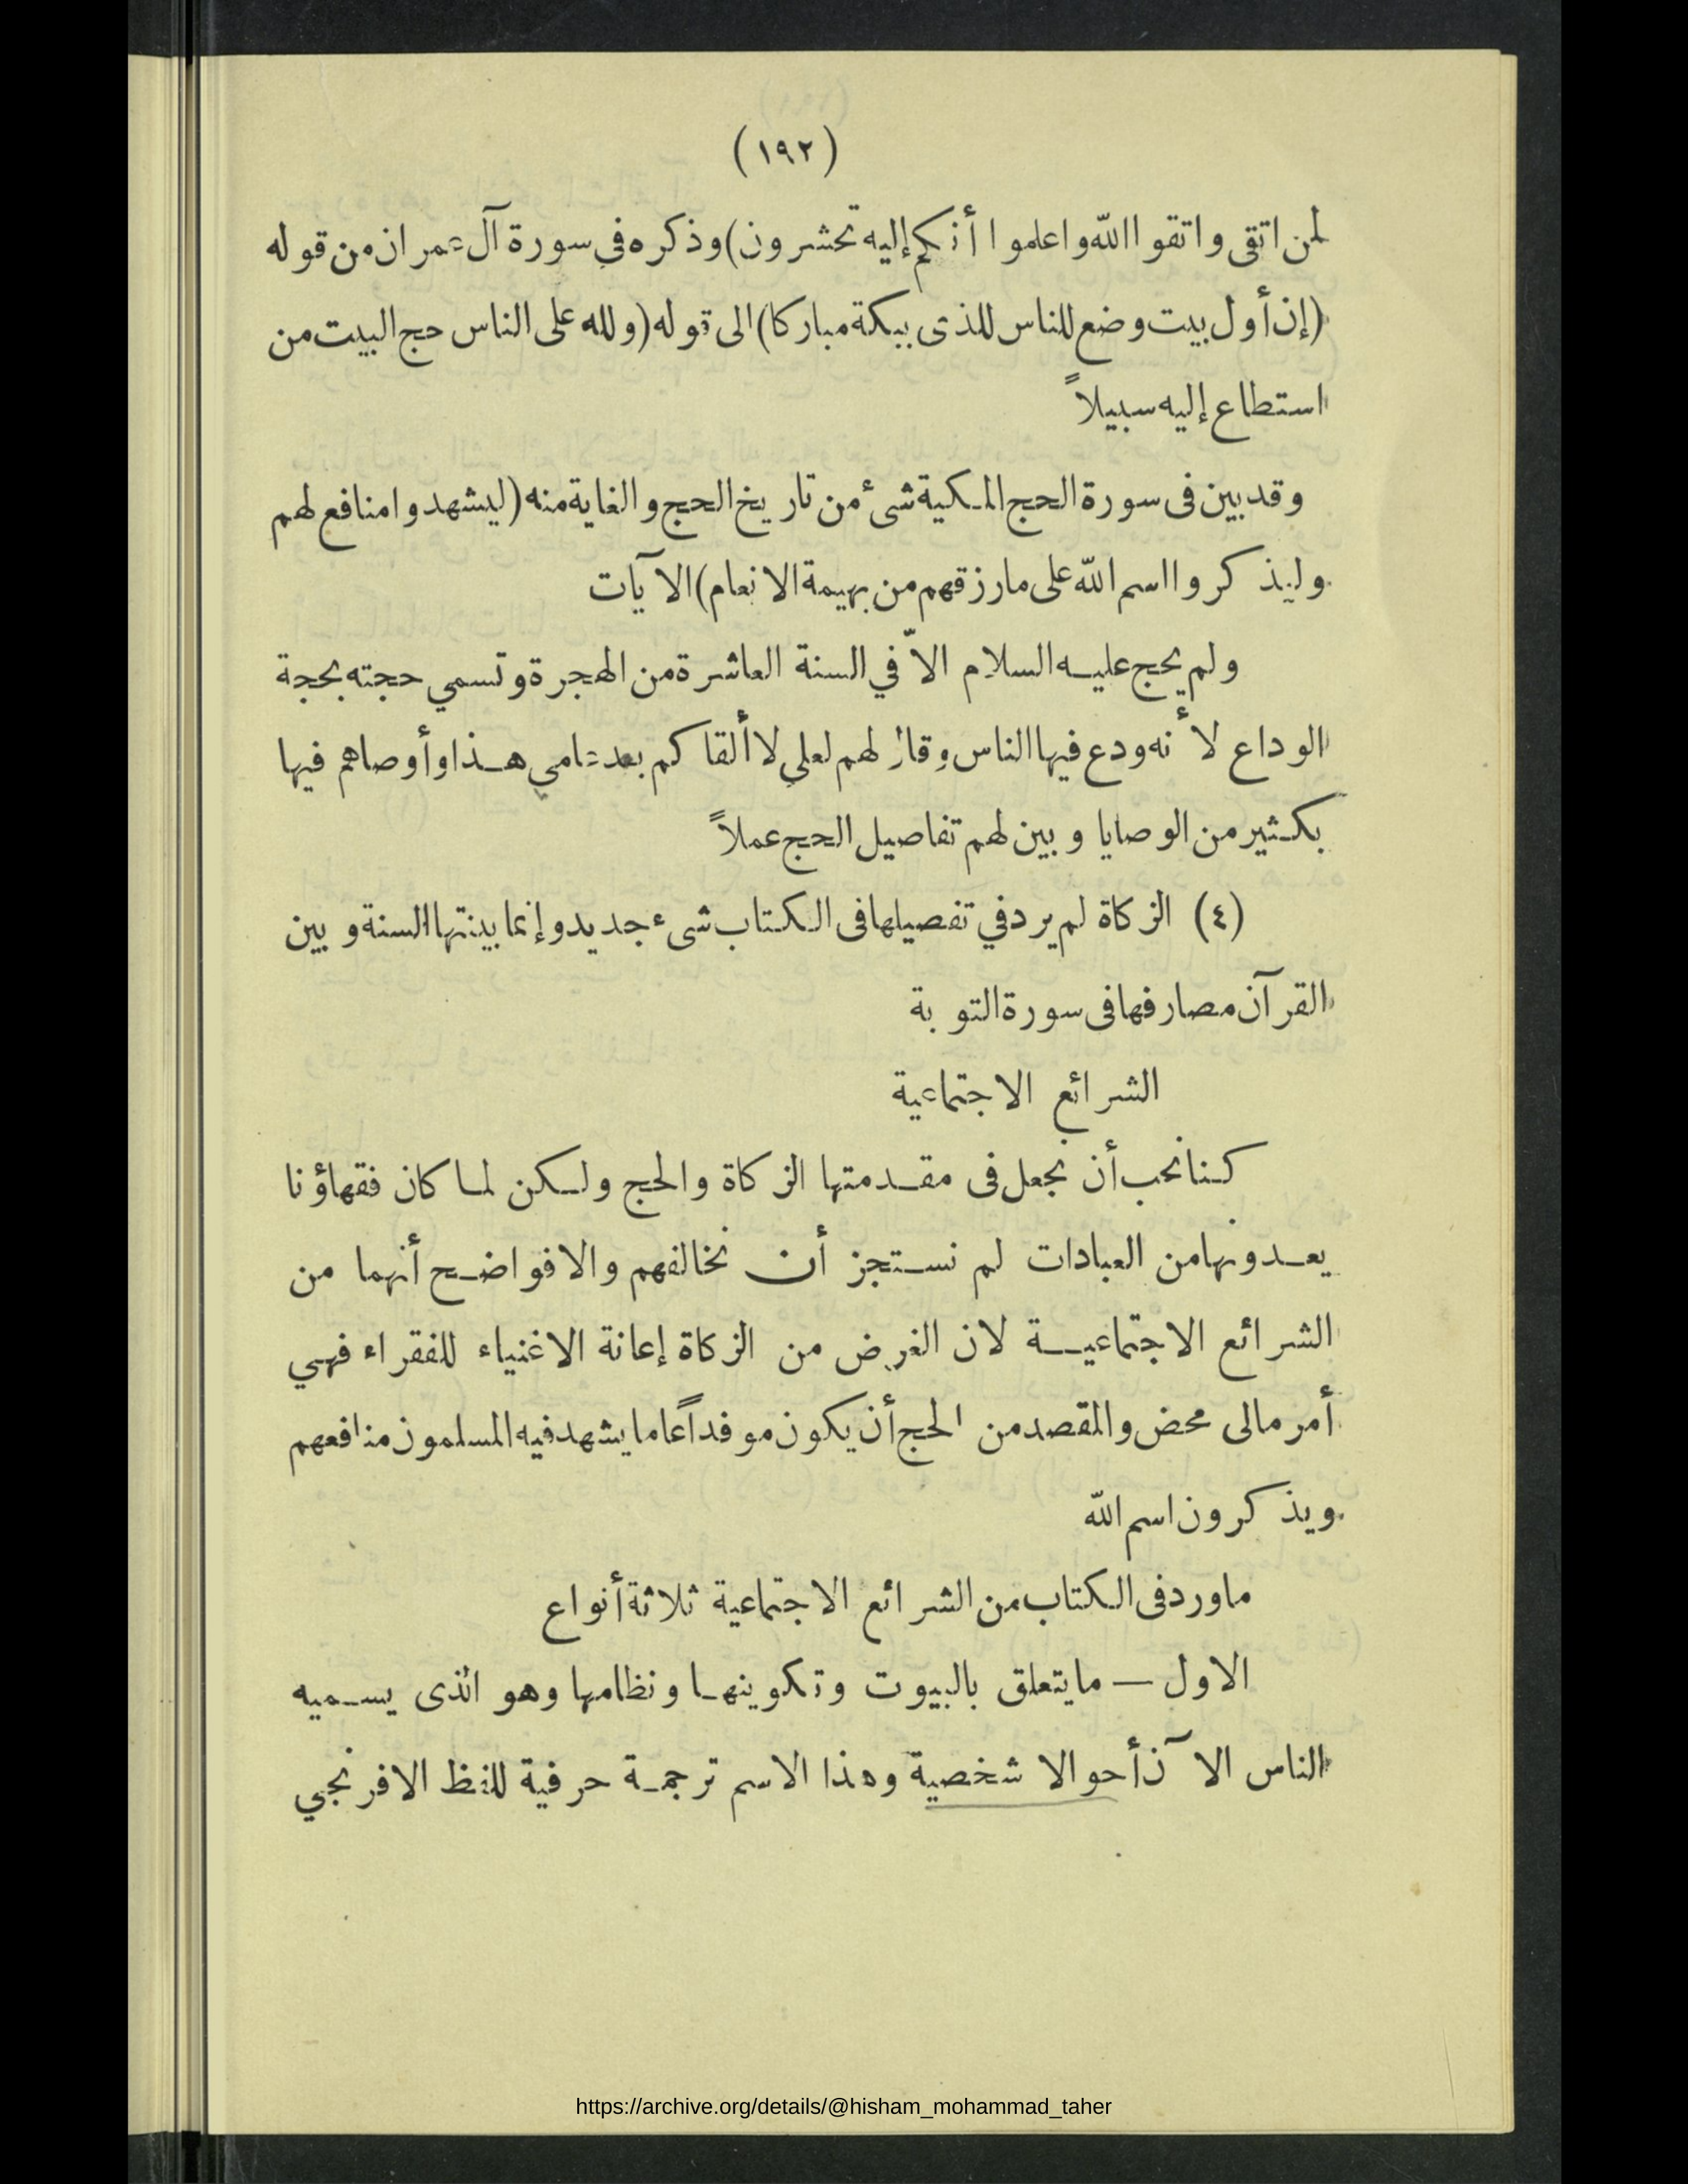 (١٩٢)
لمن اتقى واتقوا الله واعلموا أنكم إليه تحشرون) وذكره في سورة آل عمران من قوله
(إن أول بيت وضع للناس للذى ببكة مباركا) الى قوله (ولله على الناس حج البيت من
استطاع إليه سبيلاً
وقد بين فى سورة الحج المكية شىء من تاريخ الحج والغاية منه (ليشهدوا منافع لهم
وليذكروا اسم الله على مارزقهم من بهيمة الانعام) الآيات
ولم يحج عليه السلام الاّ في السنة العاشرة من الهجرة وتسمي حجته بحجة
الوداع لأنه ودع فيها الناس وقال لهم لعلي لا ألقاكم بعد عامي هذا وأوصاهم فيها
بكثير من الوصايا وبين لهم تفاصيل الحج عملاً
(٤) الزكاة لم يرد في تفصيلها فى الكتاب شىء جديد وإنما بينتها السنة وبين
القرآن مصارفها فى سورة التوبة
الشرائع الاجتماعية
كنا نحب أن نجعل فى مقدمتها الزكاة والحج ولكن لما كان فقهاؤنا
يعدونها من العبادات لم نستجز أن نخالفهم والا فواضح أنهما من
الشرائع الاجتماعية لان الغرض من الزكاة إعانة الاغنياء للفقراء فهي
أمر مالى محض والمقصد من الحج أن يكون موفداً عاما يشهد فيه المسلمون منافعهم
ويذكرون اسم الله
ماورد فى الكتاب من الشرائع الاجتماعية ثلاثة أنواع
الاول — مايتعلق بالبيوت وتكوينها ونظامها وهو الذى يسميه
الناس الآن أحوالا شخصية وهذا الاسم ترجمة حرفية للفظ الافرنجي
https://archive.org/details/@hisham_mohammad_taher